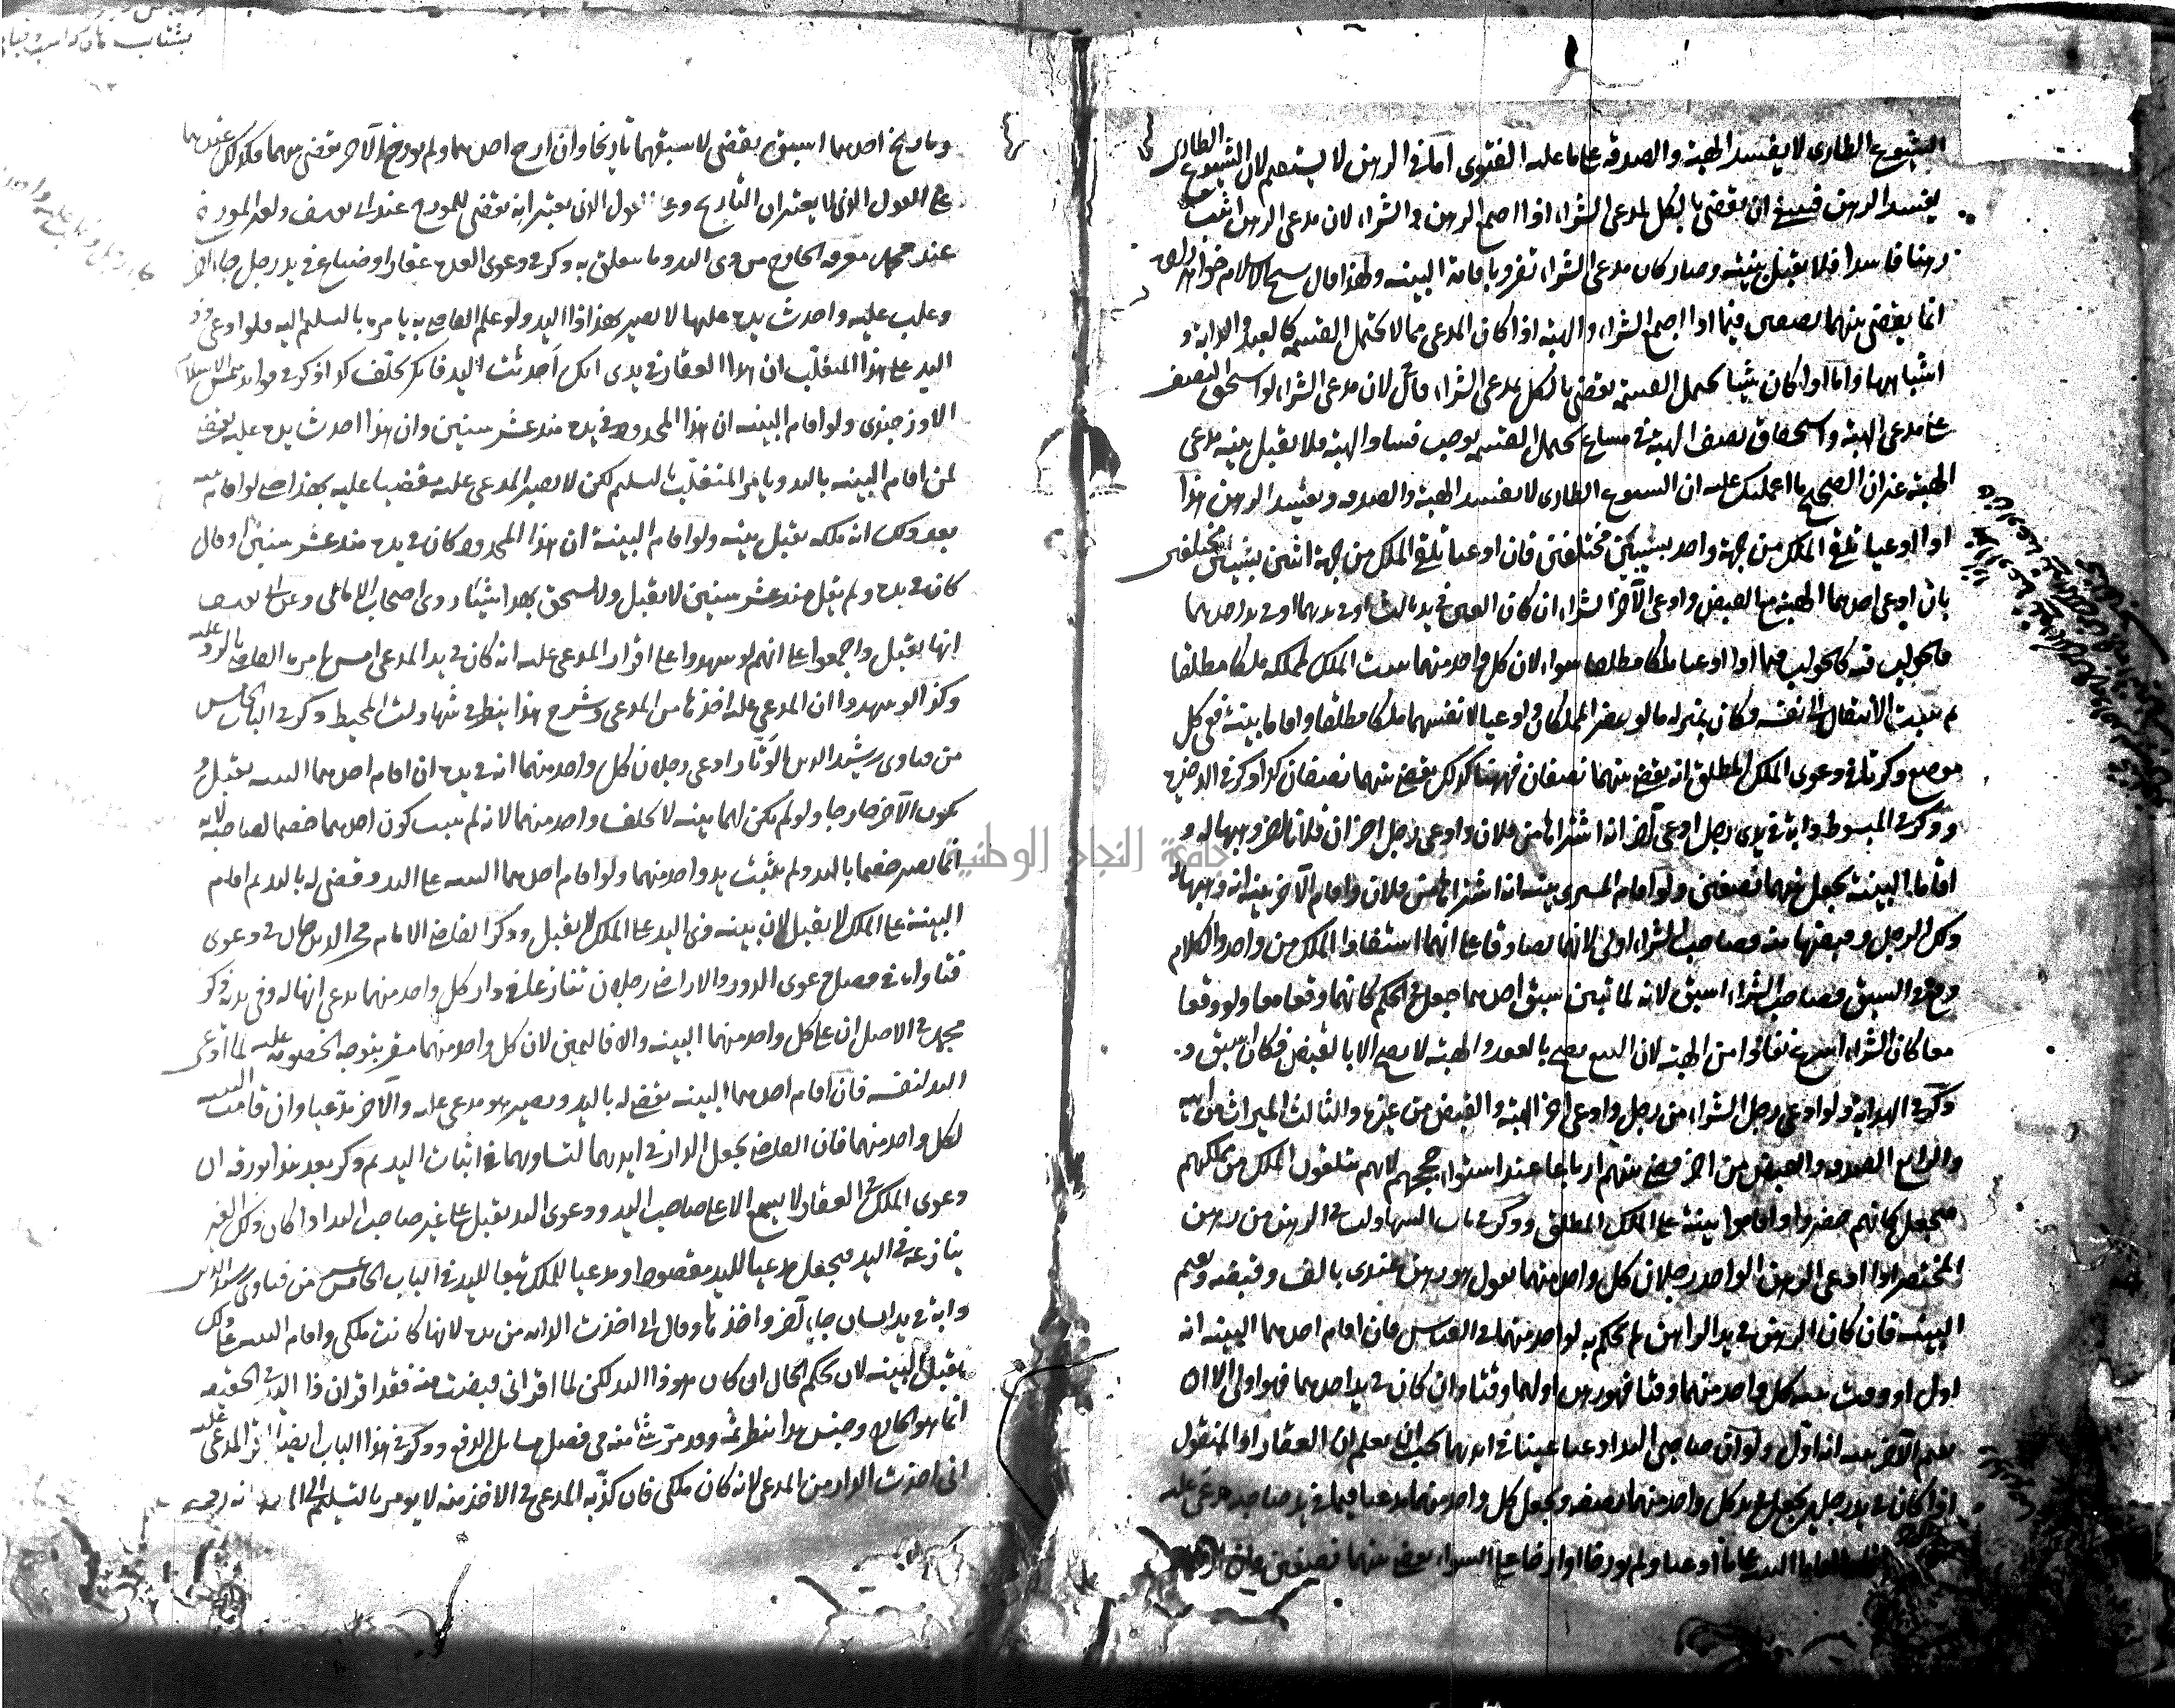 الشيوع الطارى لا يفسد الهبة والصدقة على ما عليه الفتوى اما في الرهن لا يستقيم لان الشيوع الطارى
يفسد الرهن فينبغي ان يقضى بالكل لمدعى الشراء اذا اجتمع الرهن والشراء لان مدعى الرهن اثبت
رهنا فاسدا فلا يقبل بينته وصار كان مدعى الشراء تفرد باقامة البينه ولهذا قال شيخ الاسلام خواهر زاده
انما يقضى بينهما نصفين فيما اذا اجتمع الشراء والهبة اذا كان المدعى مما لا يحتمل القسمة كالعبد والدابة و
اشباهها واما اذا كان شيئا يحتمل القسمة يقضى بالكل لمدعى الشراء قال لان مدعى الشراء لو استحق النصف
على مدعى الهبة واستحقاق نصف الهبة في مشاع يحتمل القسمة يوجب فساد الهبة فلا يقبل بينة مدعى
الهبة غير ان الصحيح ما اعلمتك عليه ان الشيوع الطارى لا يفسد الهبة والصدقة ويفسد الرهن هذا
اذا ادعيا تلقى الملك من جهة واحد بسببين مختلفين فان ادعيا تلقى الملك من جهة اثنين بسببين مختلفين
بان ادعى احدهما الهبة مع القبض وادعى الآخر الشراء ان كان العين في يد ثالث او في يدهما او في يد احدهما
فالجواب فيه كالجواب فيما اذا ادعيا ملكا مطلقا سواء لان كل واحد منهما يثبت الملك لمملكه ملكا مطلقا
ثم يثبت الانتقال الى نفسه فكان بمنزلة ما لو حضر المملكان وادعيا لانفسهما ملكا مطلقا واقاما بينة ففي كل
موضع ذكرنا في دعوى الملك المطلق انه يقضى بينهما نصفان فههنا كذلك يقضى بينهما نصفان كذا ذكر في الذخيرة
وذكر في المبسوط دابة في يدى رجل ادعى آخر انه اشتراها من فلان وادعى رجل اخر ان فلانا اخر وهبها له و
اقاما البينة يجعل بينهما نصفين ولو اقام المشترى بينة انه اشتراها من فلان واقام الآخر بينة انه وهبها له
ذلك الرجل وقبضها منه فصاحب الشراء اولى لانهما تصادقا على انهما استفادا الملك من واحد والكلام
وقع في السبق وصاحب الشراء اسبق لانه لما تبين سبق احدهما جعل في الحكم كانهما وقعا معا ولو وقعا
معا كان الشراء اسرع نفاذا من الهبة لان البيع يصح بالعقد والهبة لا يصح الا بالقبض فكان اسبق و
ذكر في الهداية ولو ادعى رجل الشراء من رجل وادعى اخر الهبة والقبض من غيره والثالث الميراث من ابيه
والرابع الصدقه والقبض من اخر قضى بينهم ارباعا عند استواء حججهم لانهم يتلقون الملك من مملكهم
فيجعل كانهم حضروا واقاموا بينة على الملك المطلق وذكر في باب الشهادات في الرهن من رهن
المختصر اذا ادعى الرهن الواحد رجلان كل واحد منهما يقول هو رهن عندى بالف وقبضه ويقيم
البينه فان كان الرهن في يد الراهن لم يحكم به لواحد منهما في القياس فان اقام احدهما البينه انه
اول او وقت بينه كل واحد منهما وقتا فهو رهن اولهما وقتا وان كان في يد احدهما فهو اولى الا ان
يقيم الآخر بينه انه اول ولو ان صاحبى اليد ادعيا عينا في ايديهما يجب ان يعلم ان العقار او المنقول
اذا كان في يد رجلين يجعل في يد كل واحد منهما نصفه ويجعل كل واحد منهما مدعيا فيما في يد صاحبه مدعى عليه
ادعيا ولم يورخا او ارخا على السواء يقضى بينهما نصفين وان ارخا
وتاريخ احدهما اسبق يقضى لاسبقهما تاريخا وان ارخ احدهما ولم يورخ الآخر يقضى بينهما فكذلك عندهما
على القول الذى لا يعتبران التاريخ وعلى القول الذى يعتبر انه يقضى للمورخ عند ابى يوسف ولغير المورخ
عند محمد معرفه الخارج من ذى اليد وما يتعلق به ذكر في دعوى العدة عقار او ضياع في يد رجل جاء آخر
وغلب عليه واحدث يده عليها لا يصير بهذا ذا اليد ولو علم القاضى به يامره بالتسليم اليه فلو ادعى ذو
اليد على هذا المتغلب ان هذا العقار في يدى انك احدثت اليد فانكر يحلف كذا ذكر في فوائد شمس الاسلام
الاوزجندى ولو اقام البينه ان هذا المحدود في يده منذ عشر سنين وان هذا احدث يده عليه يقضى
لمن اقام البينه باليد ويامر المتغلب بتسليم لكن لا يصير المدعى عليه مقضيا عليه بهذا حتى لو اقام بينه
بعد ذلك انه ملكه يقبل بينته ولو اقام البينة ان هذا المحدود كان في يده منذ عشر سنين او قال
كان في يده ولم يقل منذ عشر سنين لا يقبل ولا يستحق بهذا شيئا روى اصحاب الامالى وعن ابى يوسف
انها يقبل واجمعوا على انهم لو شهدوا على اقرار المدعى عليه انه كان في يد المدعى امس يامره القاضى بالرد عليه
وكذا لو شهدوا ان المدعى عليه اخذها من المدعى وشرح هذا ينظر في شهادات المحيط وذكر في الباب الخامس
من فتاوى رشيد الدين الوتار ادعى رجلان كل واحد منهما انه في يده ان اقام احدهما البينه يقبل و
يكون الآخر خارجا ولو لم يكن لهما بينه لا يحلف واحد منهما لانه لم يثبت كون احدهما خصما لصاحبه لانه
انما يصير خصما باليد ولم يثبت يد واحد منهما ولو اقام احدهما البينه على اليد وقضى له باليد ثم اقام
البينة على الملك لا يقبل لان بينه ذى اليد على الملك لا يقبل وذكر القاضى الامام فخر الدين خان في دعوى
فتاواه في فصل دعوى الدور والاراضى رجلان تنازعا في دار كل واحد منهما يدعى انها له وفي يده ذكر
محمد في الاصل ان على كل واحد منهما البينه والا فاليمين لان كل واحد منهما مقر بتوجه الخصومه عليه لما ادعى
اليد لنفسه فان اقام احدهما البينه يقضى له باليد ويصير هو مدعى عليه والآخر مدعيا وان قامت البينه
لكل واحد منهما فان القاضى يجعل الدار في ايديهما لتساويهما في اثبات اليد ثم ذكر بعد هذا بورقه ان
دعوى الملك في العقار لا يسمع الا على صاحب اليد ودعوى اليد يقبل على غير صاحب اليد اذا كان ذلك الغير
ينازعه في اليد فيجعل مدعيا لليد مقصودا ومدعيا للملك تبعا لليد في الباب الخامس عشر من فتاوى رشيد الدين
دابة في يد انسان جاء آخر واخذها وقال انى اخذت الدابه من يده لانها كانت ملكى واقام البينه على ذلك
يقبل البينه لان بحكم الحال ان كان هو ذا اليد لكن لما اقر انى قبضت منه فقد اقر ان ذا اليد في الحقيقه
انما هو الخارج وجنس هذا ينظر ثمة وقد مرت ثامنه في فصل مسايل الدفع وذكر في هذا الباب ايضا اقر المدعى عليه
انى اخذت الدار من المدعى لانه كان ملكى فان كذبه المدعى في الاخذ منه لا يومر بالتسليم الى المدعى لانه رد
جامعة النجاح الوطنية